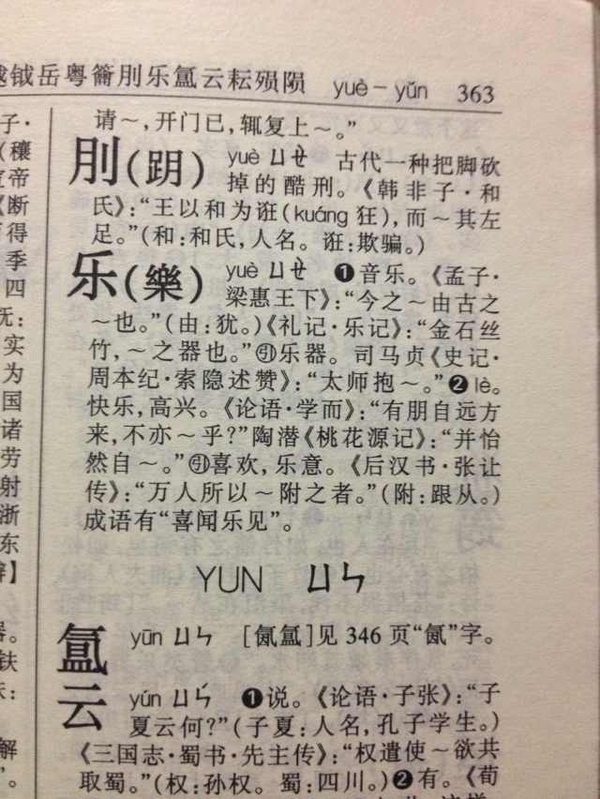 钺岳粤籥刖乐氲云耘殒陨 yuè－yǔn 363
请～，开门已，辄复上～。”
刖(跀) yuè ㄩㄝˋ 古代一种把脚砍
掉的酷刑。《韩非子·和
氏》：“王以和为诳(kuáng 狂)，而～其左
足。”(和：和氏，人名。诳：欺骗。)
乐(樂) yuè ㄩㄝˋ ❶音乐。《孟子·
梁惠王下》：“今之～由古之
～也。”(由：犹。)《礼记·乐记》：“金石丝
竹，～之器也。”㊁乐器。司马贞《史记·
周本纪·索隐述赞》：“太师抱～。”❷lè。
快乐，高兴。《论语·学而》：“有朋自远方
来，不亦～乎？”陶潜《桃花源记》：“并怡
然自～。”㊁喜欢，乐意。《后汉书·张让
传》：“万人所以～附之者。”(附：跟从。)
成语有“喜闻乐见”。
YUN ㄩㄣ
氲 yūn ㄩㄣ [氤氲]见 346 页“氤”字。
云 yún ㄩㄣˊ ❶说。《论语·子张》：“子
夏云何？”(子夏：人名，孔子学生。)
《三国志·蜀书·先主传》：“权遣使～欲共
取蜀。”(权：孙权。蜀：四川。)❷有。《荀
子·
(穰
帝
《断
得
季
四
无：
实
为
国
诸
劳
射
浙
东
】
器。
铁
解
”。